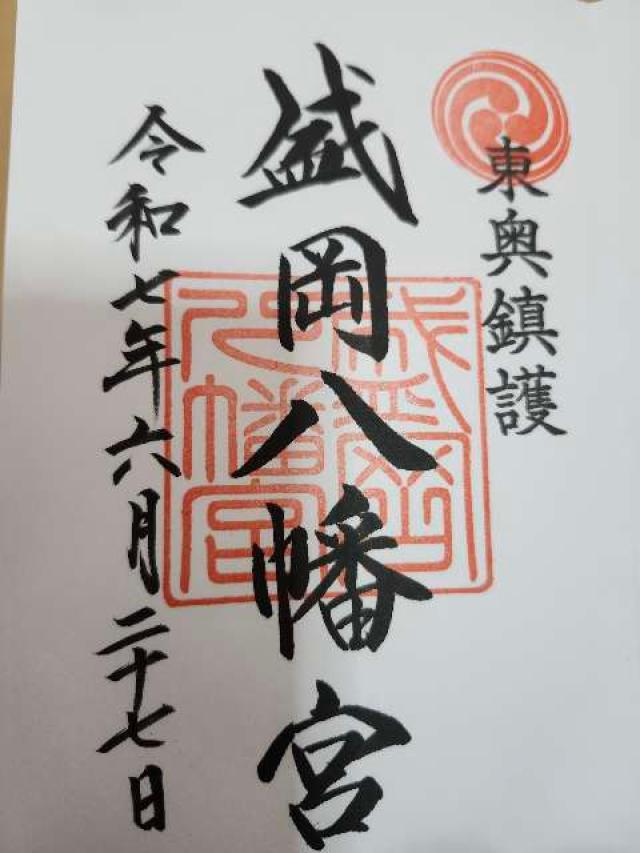 東奥鎮護
盛岡八幡宮
令和七年六月二十七日
盛岡
八幡宮